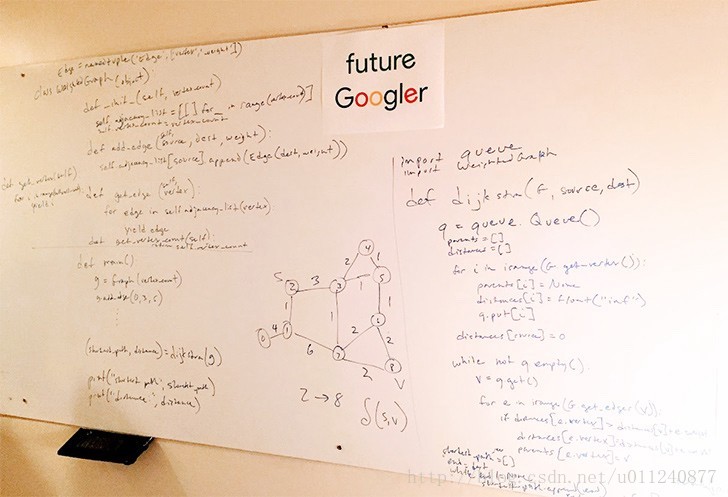 Edge = namedtuple('Edge', ['vertex', 'weight'])
class WeightedGraph(object):
def _init_(self, vertex_count)
self.adjacency_list = [[] for _ in range(vertex_count)]
self.vertex_count = vertex_count
def add_edge(self, source, dest, weight):
self.adjacency_list[source].append(Edge(dest, weight))
def get_vertex(self)
for i in
yield i
def get_edge(self, vertex):
for edge in self.adjacency_list(vertex)
yield edge
def get_vertex_count(self):
return self.vertex_count
def main()
g = Graph(vertex_count)
g.add_edge(0,
(shortest_path, distance) = dijkstra(g)
print("shortest path", shortest_path)
print("distance", distance)
future
Googler
S
0 4 1 1 2 3 3 2 4 1 5 1 1 1 6 7 2 2 2 8
V
2 → 8
δ(s,v)
import queue
import WeightedGraph
def dijkstra(G, source, dest)
q = queue.Queue()
parents = []
distances = []
for i in irange(G.get_vertex()):
parents[i] = None
distances[i] = float("inf")
q.put[i]
distances[source] = 0
while not q.empty().
v = q.get()
for e in irange(G.get_edges(v)):
if distances[e.vertex] > distance[v] +
distances[e.vertex] = distance[v] +
parents[e.vertex] = v
shortest_path = []
end = dest
while end is not None
http://blog.csdn.net/u011240877